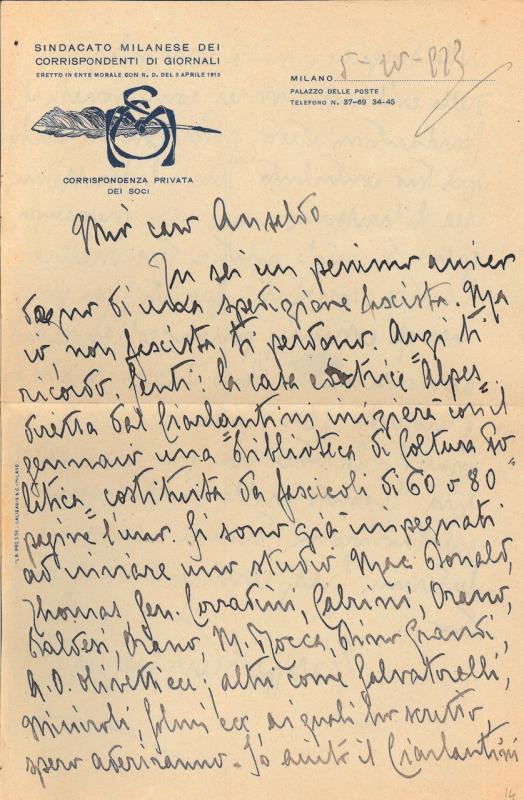 SINDACATO MILANESE DEI
CORRISPONDENTI DI GIORNALI
ERETTO IN ENTE MORALE CON R. D. DEL 3 APRILE 1913
CORRISPONDENZA PRIVATA
DEI SOCI
MILANO 5-10-923
PALAZZO DELLE POSTE
TELEFONO N. 37-69 34-45
Mio caro Ansaldo
Tu sei un pessimo amico
degno di una spedizione fascista. Ma
io, non fascista, ti perdono. Anzi ti
ricordo. Senti: la casa editrice "Alpes"
diretta dal Ciarlantini inizierà con il
gennaio una "Biblioteca di Coltura Po-
litica" costituita da fascicoli di 60 o 80
pagine l'uno. Si sono già impegnati
ad inviare uno studio Mac Donald,
Thomas, Gen. Corradini, Cabrini, Orano,
Baldesi, Orano, M. Rocca, Dino Grandi,
A. O. Olivetti ecc; altri come Salvatorelli,
Missiroli, Solmi ecc, ai quali ho scritto,
spero aderiranno. Io aiuto il Ciarlantini
14